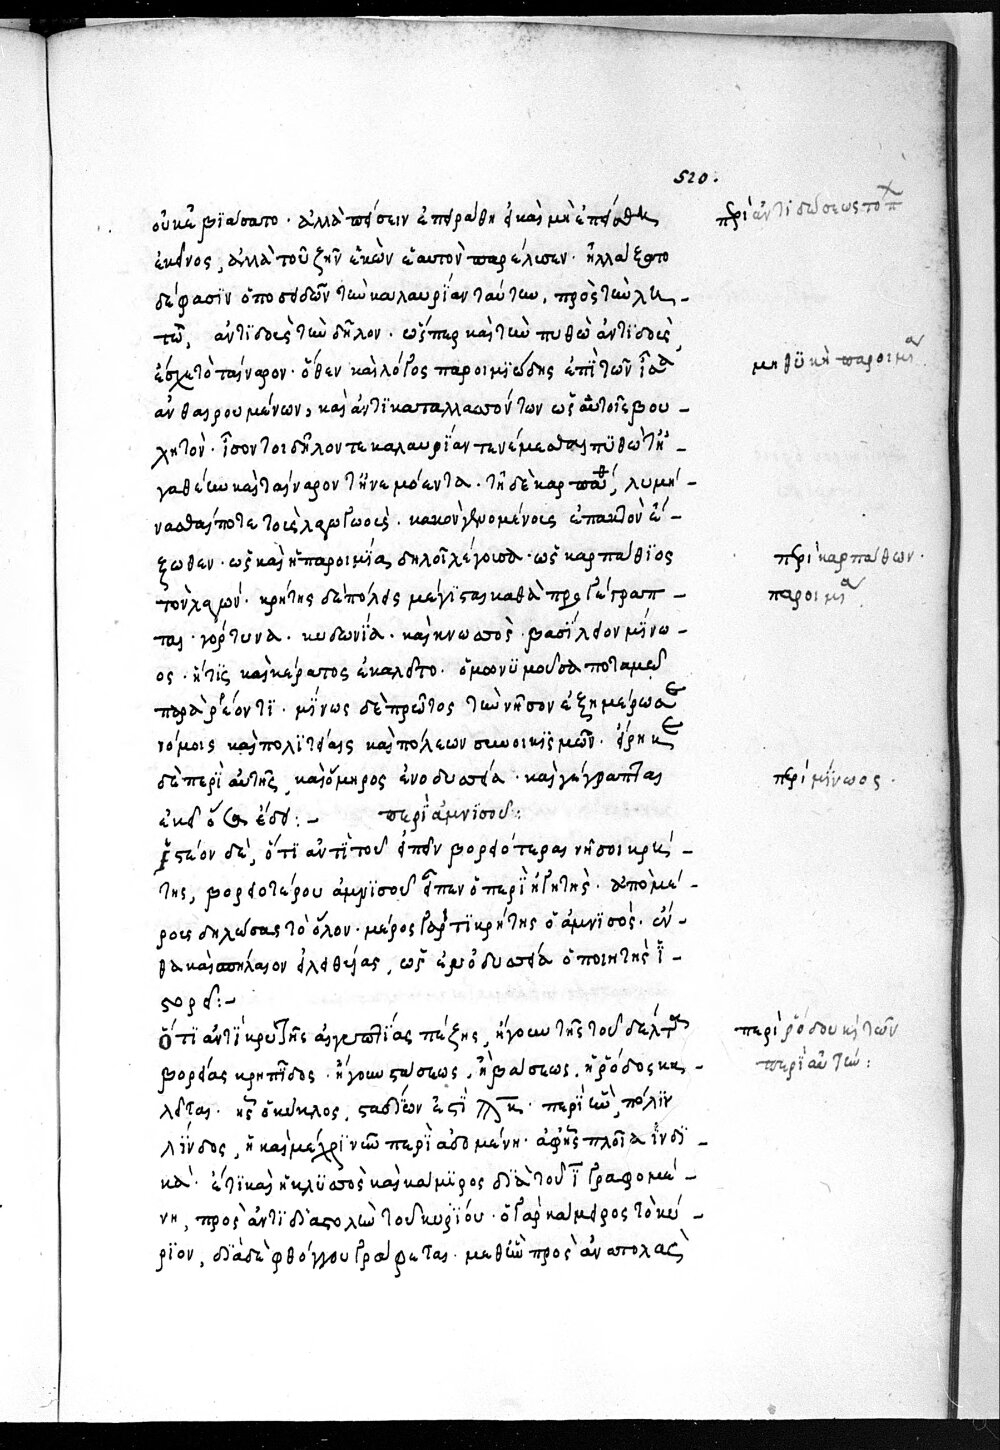 520.
οὐκ ἐβϊάσατο · ἀλλὰ πείσειν ἐπειράθη εἰ καὶ μὴ ἐπείσθη
ἐκεῖνος, ἀλλὰ τοῦ ζῆν ἑκὼν ἑαυτὸν παρέλυσεν · ἠλλάξατο
δέ φασϊν ὁ ποσειδῶν τὴν καλαυρίαν ταύτην, πρὸς τὴν λη -
τὼ, ἀντιδοὺς τὴν δῆλον · ὥσπερ καὶ τὴν πυθὼ ἀντϊδοὺς,
ἔσχε τὸ ταίναρον · ὅθεν καὶ λόγος παροιμιώδης ἐπὶ τῶν ἴσα
ἀνθαιρουμένων, καὶ ἀντϊκαταλλασσόντων ὡς αὐτοῖς βου -
λητόν · ἶσόν τοι δῆλόν τε καλαυρίαν τε νέμεσθαι πϋθώ τ' ἠ -
γαθέην καὶ ταίναρον ἠνεμόεντα · τῇ δὲ καρπάθ, λυμή -
νασθαί ποτε τοὺς λαγωγοὺς · κακὸν γενομένοις ἐπακτὸν ἔ -
ξωθεν · ὡς καὶ ἡ παροιμία δηλοῖ λέγουσα · ὡς καρπάθϊος
τὸν λαγών · κρήτης δὲ πόλεις μέγισται καθὰ προγέγραπ -
ται · γόρτυνα · κυδωνία · καὶ κνωσσὸς · βασίλειον μίνω -
ος · ἥτις καὶ κέρατος ἐκαλεῖτο · ὁμωνϋμοῦσα ποταμῶ
παραρρέοντϊ · μίνως δὲ πρῶτος τὴν νῆσον ἐξημέρωσε
νόμοις καὶ πολιτείαις καὶ πόλεων συνοικισμῶν · εἴρηκε
δὲ περὶ αὐτῆς, καὶ ὅμηρος ἐν ὀδυσσεία · καὶ γέγραπται
ἐκεῖ ὅσα ἔδει : - περὶ ἀμνϊσοῦ :
Ἰστέον δὲ, ὅτϊ ἀντὶ τοῦ εἰπεῖν βορειότεραι νῆσοι κρή -
της, βορειοτέρου ἀμνϊσοῦ εἶπεν ὁ περϊηγητὴς · ἀπὸ μέ -
ρους δηλώσας τὸ ὅλον · μέρος γάρ τϊ κρήτης ὁ ἀμνϊσὸς · ἔν -
θα καὶ σπήλαιον εἰλειθυίας, ὡς ἐν ὀδυσσεία ὁ ποιητὴς ἱ -
στορεῖ : -
Ὅτϊ ἀντϊκρὺ τῆς αἰγυπτίας πέζης, ἤγουν τῆς τοῦ δέλτα
βορείας κρηπῖδος · ἤγουν στάσεως, ἢ βάσεως, ἡ ῥόδος κα -
λεῖται · ἧς ὁ κύκλος, σταδίων ἐστὶ · περὶ ἣν, πόλϊν
λίνδος, ἡ καὶ μέχρϊ νῦν περιαδομένη · ἀφ' ἧς πλοῖα ἰνδϊ -
κά · ἔτϊ καὶ ἡ κλϋτὸς καὶ καμῖρος δϊὰ τοῦ ϊ γραφομέ -
νη, πρὸς ἀντϊδϊαστολὴν τοῦ κυρίου · ὁ γὰρ κάμειρος τὸ κύ -
ρϊον, δϊὰ διφθόγγου γράφεται · μεθ' ἣν πρὸς ἀνατολὰς
περὶ ἀντιδόσεως τοπ
μηθϋκὴ παροιμία
περὶ καρπάθων .
παροιμία
περὶ μίνωος .
περὶ ῥόδου κ τῶν
περὶ αὐτήν :